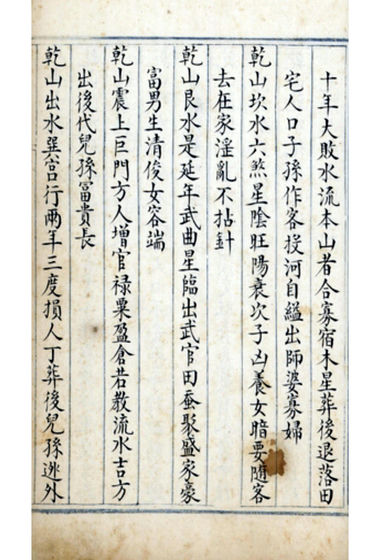 十年大敗水流本山者合寡宿木星葬後退落田
宅人口子孫作客投河自縊出師婆寡婦
乾山坎水六煞星陰旺陽衰次子凶養女暗要隨客
去在家淫亂不拈針
乾山艮水是延年武曲星臨出武官田蚕聚盛家豪
富男生清俊女容端
乾山震上巨門方人增官禄粟盈倉若教流水吉方
出後代兒孫冨貴長
乾山出水巽宮行两年三度損人丁葬後兒孫逃外